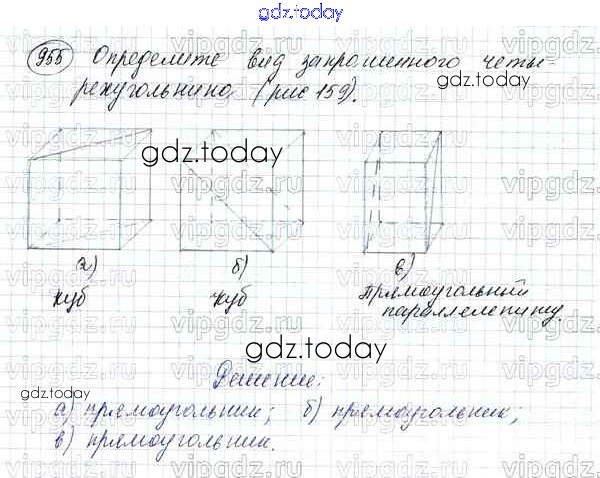 gdz.today
955 Определите вид закрошенного четы-
рехугольнино (рис 159).
gdz.today
gdz.today
а) б) в)
куб куб Прямоугольный
параллелепипед.
gdz.today
Решение:
gdz.today
а) прямоугольник; б) прямоугольник;
в) прямоугольник.
vipgdz.ru